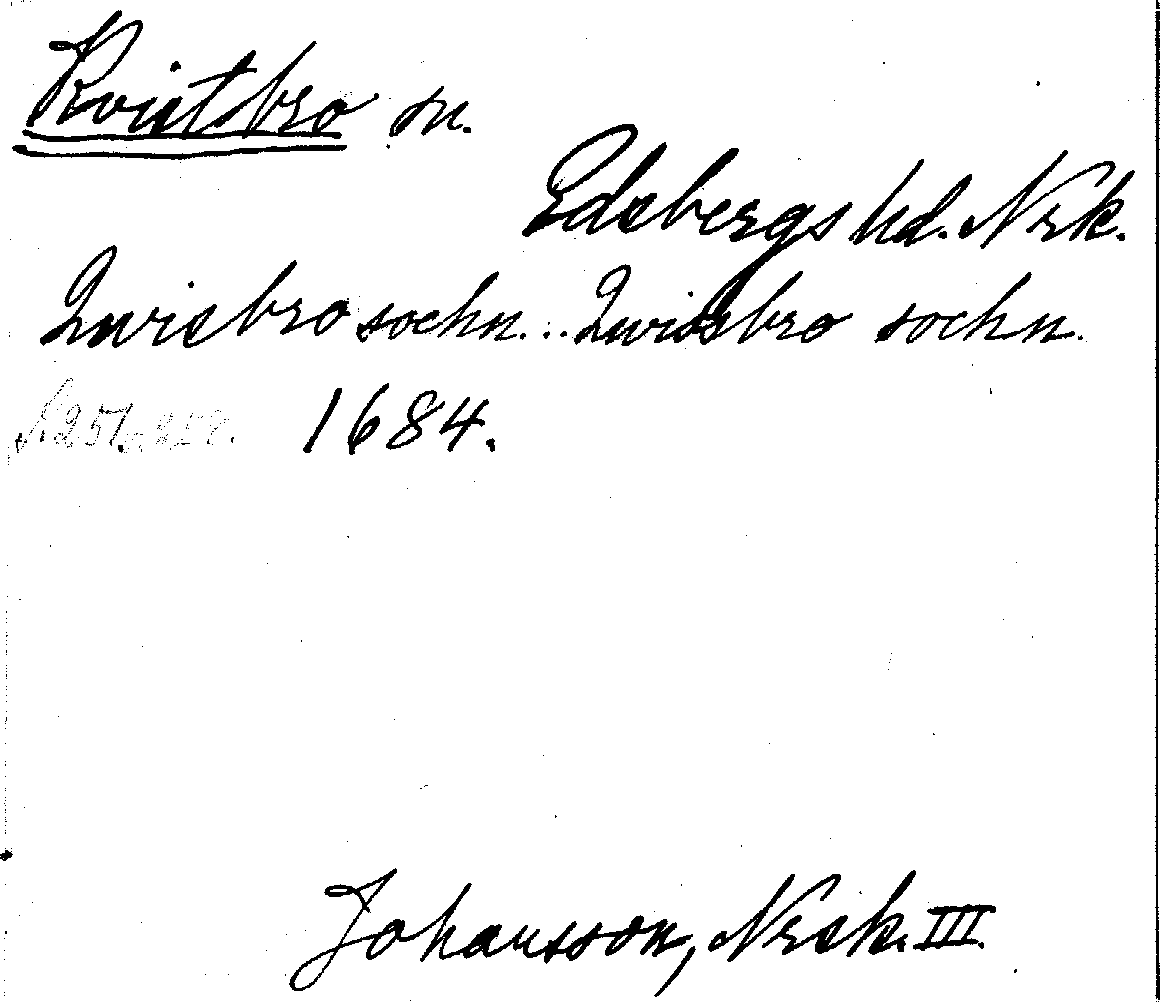 Kvistbro sn.
Edsbergs hd. Nrk.
Qwisbro sochn... Qwissbro sochn.
1684.
Johansson, Nrsk. III